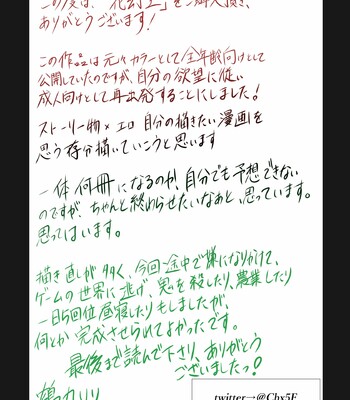 この度は、「花幻上」をご購入頂き、
ありがとうございます!
この作品は元々カラーとして全年齢向けとして
公開していたのですが、自分の欲望に従い
成人向けとして再出発することにしました!
ストーリー物×エロ 自分の描きたい漫画を
思う存分描いていこうと思います
一体何冊になるのか、自分でも予想できない
のですが、ちゃんと終わらせたいなあと、思っています。
思ってはいます。
描き直しが多く、今回途中で嫌になりかけて、
ゲームの世界に逃げ、鬼を殺したり、農業したり
一日5回位昼寝したりもしましたが、
何とか完成させられてよかったです。
最後まで読んで下さり、ありがとう
ございましたっ!
twitter→@Chx5F